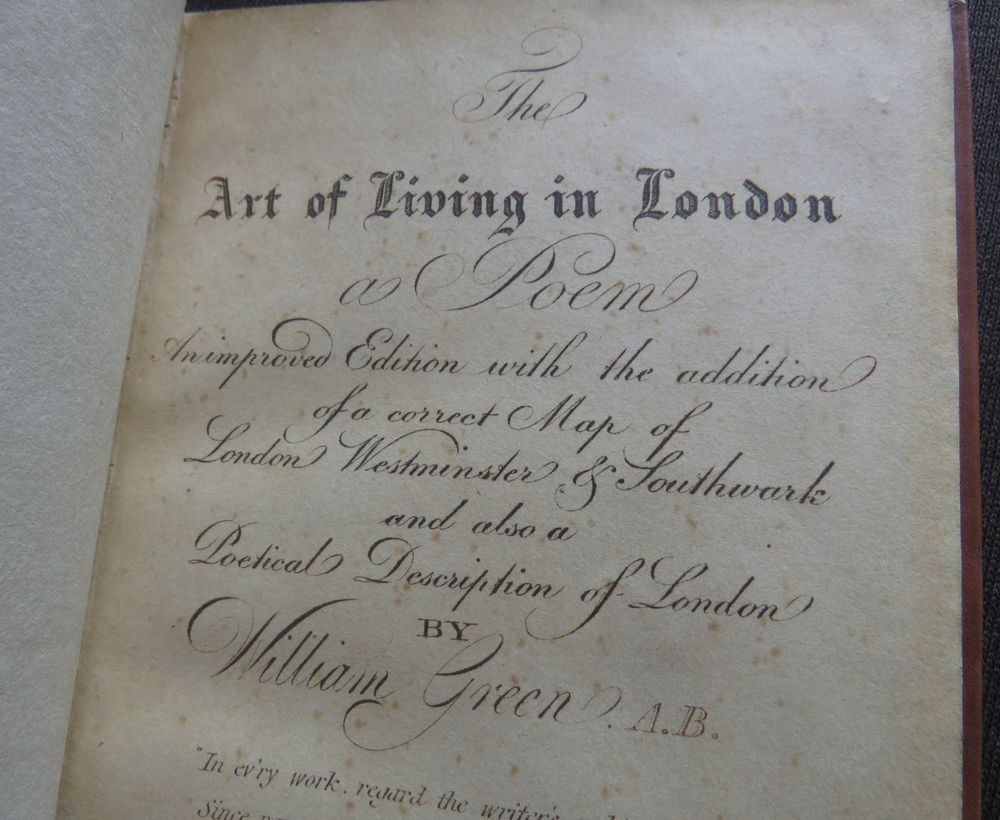 The
Art of Living in London
a Poem
An improved Edition with the addition
of a correct Map of
London Westminster & Southwark
and also a
Poetical Description of London
BY
William Green. A.B.
"In ev'ry work regard the writer's
Since